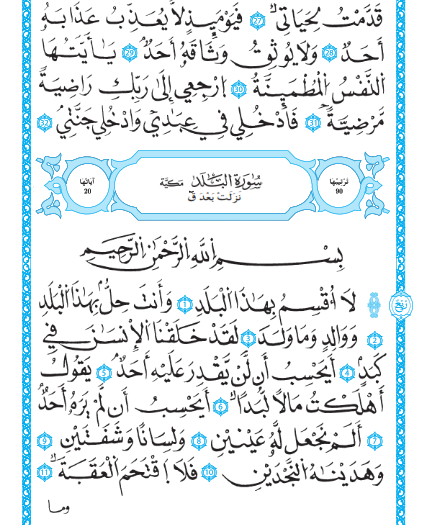 قَدَّمْتُ لِحَيَاتِي 27 فَيَوْمَئِذٍ لَّا يُعَذِّبُ عَذَابَهُۥ
أَحَدٌ 28 وَلَا يُوثِقُ وَثَاقَهُۥ أَحَدٌ 29 يَٰٓأَيَّتُهَا
اَ۬لنَّفْسُ اُ۬لْمُطْمَئِنَّةُ 30 اُ۪رْجِعِي إِلَىٰ رَبِّكِ رَاضِيَةً
مَّرْضِيَّةً 31 فَادْخُلِي فِي عِبَٰدِي وَادْخُلِي جَنَّتِي 32
تَرتيبُهَا 90
سُورَةُ البَلَدِ مَكيَّة
نَزَلَتْ بَعْدَ ق
آيَاتُهَا 20
بِسْمِ اِ۬للَّهِ اِ۬لرَّحْمَٰنِ اِ۬لرَّحِيمِ
لَا أُقْسِمُ بِهَٰذَا اَ۬لْبَلَدِ 1 وَأَنتَ حِلُّۢ بِهَٰذَا اَ۬لْبَلَدِ
رُبْع
2 وَوَالِدٍ وَمَا وَلَدَ 3 لَقَدْ خَلَقْنَا اَ۬لْإِنسَٰنَ فِي
كَبَدٍ 4 أَيَحْسِبُ أَن لَّن يَّقْدِرَ عَلَيْهِ أَحَدٌ 5 يَقُولُ
أَهْلَكْتُ مَالاً لُّبَداً 6 أَيَحْسِبُ أَن لَّمْ يَرَهُۥ أَحَدٌ
7 أَلَمْ نَجْعَل لَّهُۥ عَيْنَيْنِ 8 وَلِسَاناً وَشَفَتَيْنِ 9
وَهَدَيْنَٰهُ اُ۬لنَّجْدَيْنِ 10 فَلَا اَ۪قْتَحَمَ اَ۬لْعَقَبَةَ 11
وما